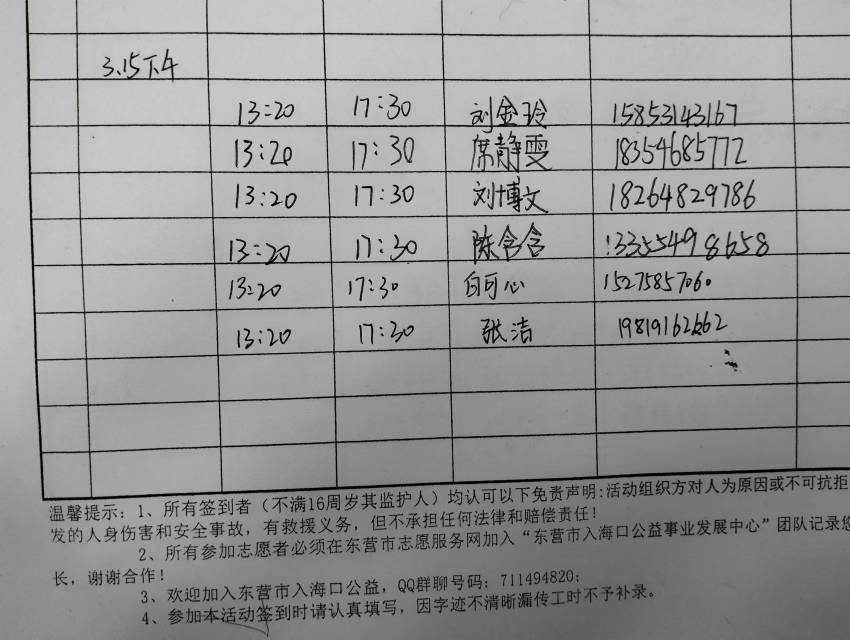 3.15下午
13:20 17:30 刘金玲 15853143167
13:20 17:30 席静雯 18354685772
13:20 17:30 刘博文 18264829786
13:20 17:30 陈含含 13355498658
13:20 17:30 白可心 15275857060
13:20 17:30 张洁 19819162662
温馨提示：1、所有签到者（不满16周岁其监护人）均认可以下免责声明:活动组织方对人为原因或不可抗拒
发的人身伤害和安全事故，有救援义务，但不承担任何法律和赔偿责任!
2、所有参加志愿者必须在东营市志愿服务网加入“东营市入海口公益事业发展中心”团队记录您
长，谢谢合作!
3、欢迎加入东营市入海口公益，QQ群聊号码：711494820；
4、参加本活动签到时请认真填写，因字迹不清晰漏传工时不予补录。